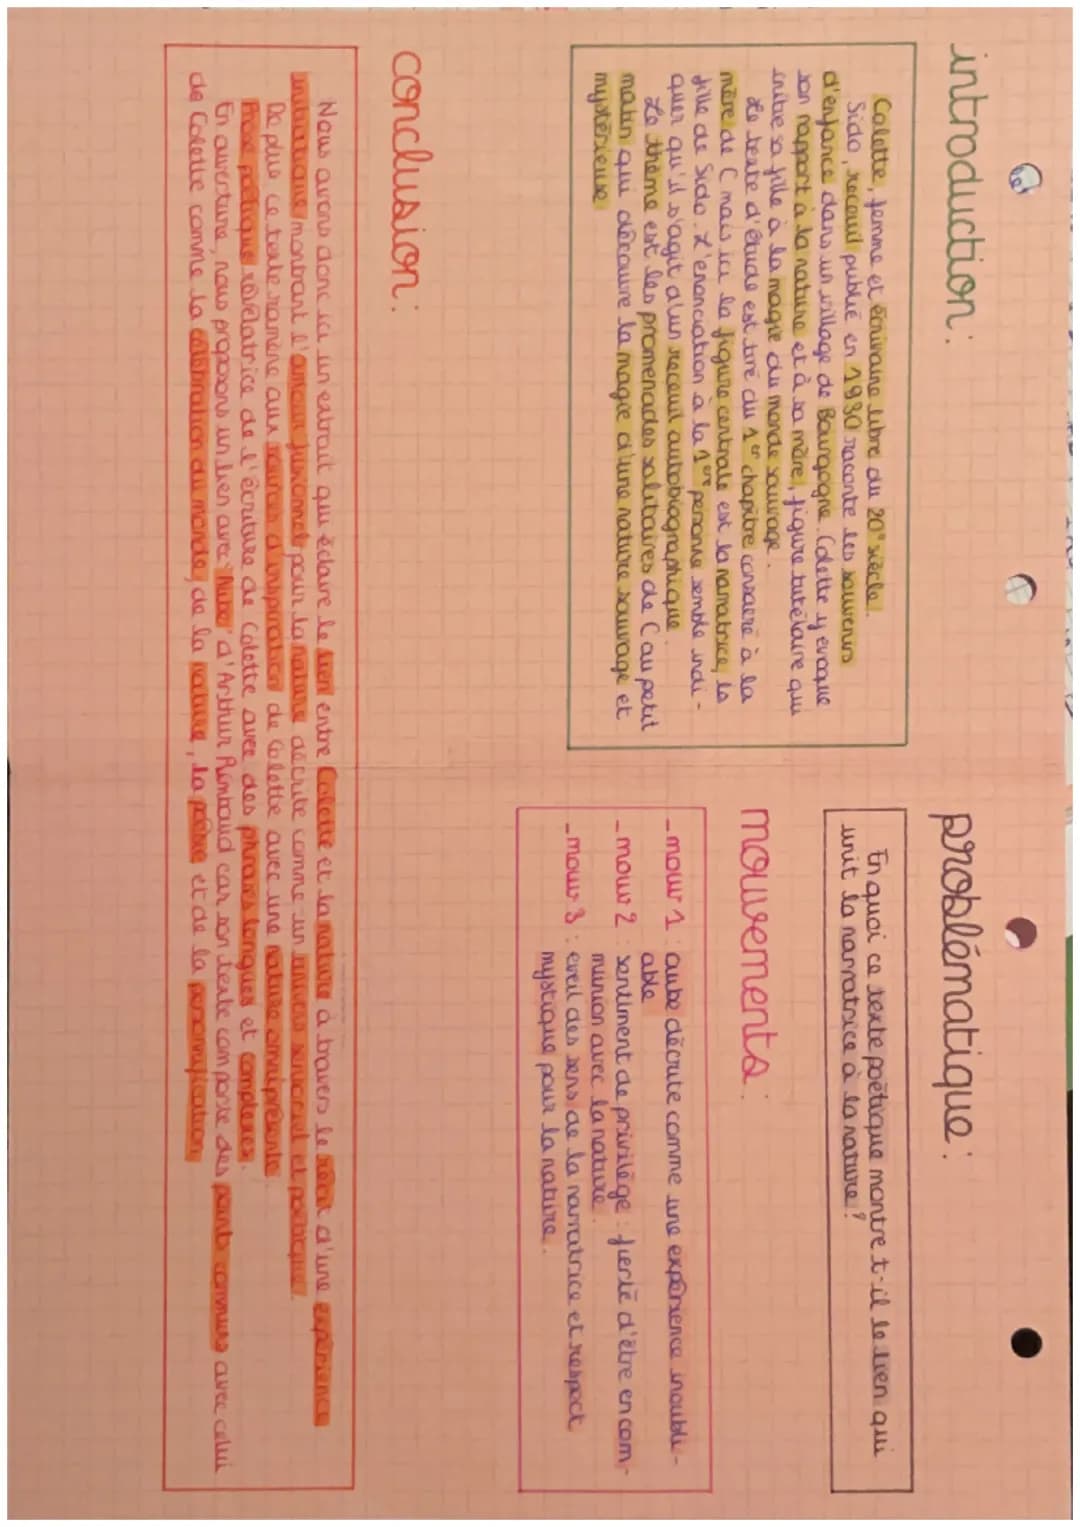 introduction :
Colette, femme et écrivaine libre du 20° siècle.
Sido, receuil publié en 1930 raconte les souvenirs
d'enfance dans un village de Bourgogne. Colette y evoque
son rapport à la nature et à sa mère, figure tutélaire qui
initie sa fille à la magie du monde sauvage.
Le texte d'étude est tiré du 1er chapitre consacré à la
mère de C mais ici la figure centrale est la narratrice, la
fille de Sido. L'énonciation à la 1ère personne semble indi-
quer qu'il s'agit d'un receuil autobiographique.
Le thème est les promenades solitaires de C au petit
matin qui découvre la magie d'une nature sauvage et
mystérieuse
problématique :
En quoi ce texte poétique montre t-il le lien qui
unit la narratrice à la nature ?
mouvements :
- mouv 1 : aube décrite comme une expérience inoubli-
able
- mouv 2 : sentiment de privilège : fierté d'être en com-
munion avec la nature.
- mouv 3 : eveil des sens de la narratrice et respect
mystique pour la nature.
conclusion :
Nous avons donc ici un extrait qui éclaire le lien entre Colette et la nature à travers le récit d'une expérience
initiatique montrant l'amour fusionnel pour la nature décrite comme un univers sensoriel et poétique.
De plus ce texte ramène aux sources d'inspiration de Colette avec une nature omniprésente.
Prose poétique révélatrice de l'écriture de Colette avec des phrases longues et complexes.
En ouverture, nous proposons un lien avec "Aube" d'Arthur Rimbaud car son texte comporte des points communs avec celui
de Colette comme la célébration du monde, de la nature, la poésie et de la personnification